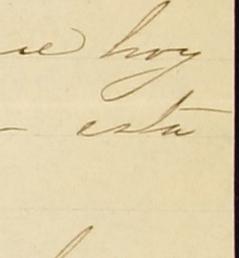 hoy
esta